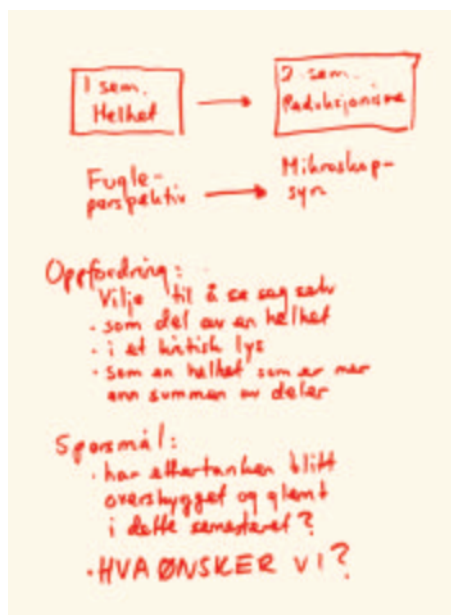 1 sem.
Helhet
2 sem.
Reduksjonisme
Fugle-
perspektiv
Mikroskop-
syn
Oppfordring:
Vilje til å se seg selv
• som del av en helhet
• i et kritisk lys
• som en helhet som er mer
enn summen av deler
Spørsmål:
• har ettertanken blitt
overskygget og glemt
i dette semesteret?
• HVA ØNSKER VI?